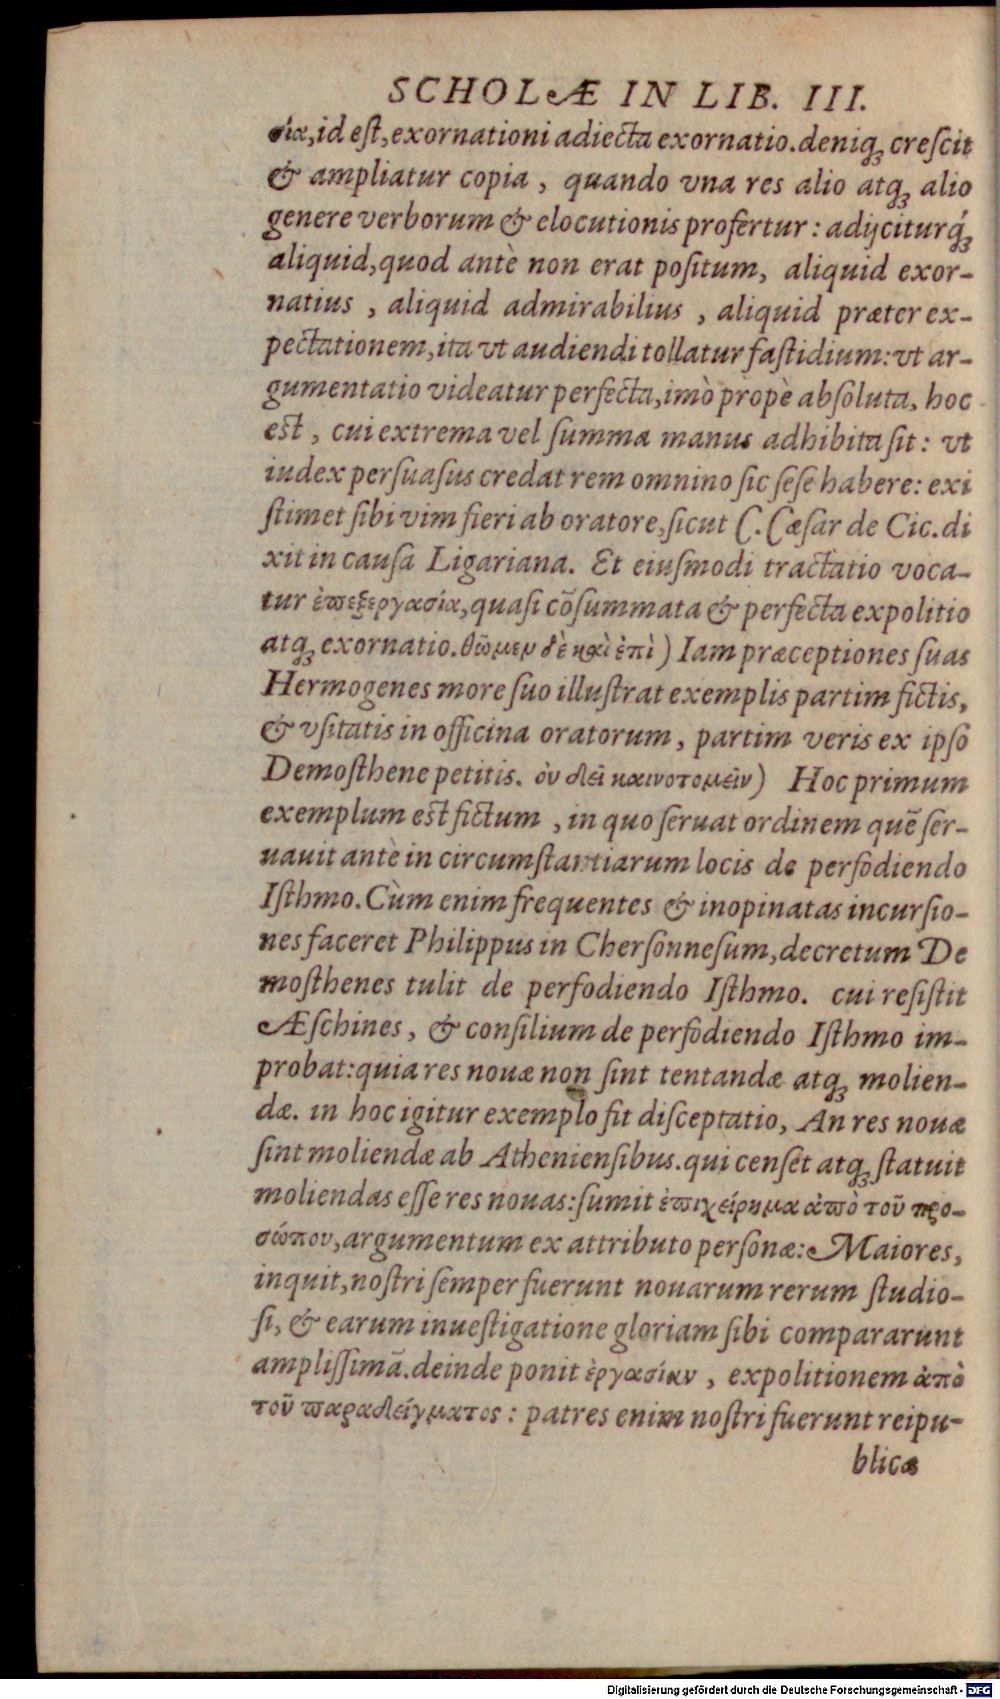 SCHOLÆ IN LIB. III.
σία, id eſt, exornationi adiecta exornatio. deniq; creſcit
& ampliatur copia, quando vna res alio atq; alio
genere verborum & elocutionis profertur: adijciturq́;
aliquid, quod antè non erat poſitum, aliquid exor-
natius, aliquid admirabilius, aliquid præter ex-
pectationem, ita vt audiendi tollatur faſtidium: vt ar-
gumentatio videatur perfecta, imò propè abſoluta, hoc
eſt, cui extrema vel ſumma manus adhibita ſit: vt
iudex perſuaſus credat rem omnino ſic ſeſe habere: exi
ſtimet ſibi vim fieri ab oratore, ſicut C. Cæſar de Cic. di
xit in cauſa Ligariana. Et eiuſmodi tractatio voca-
tur ἐπεξεργασία, quaſi cōſummata & perfecta expolitio
atq; exornatio. θῶμεν δὲ καὶ ἐπὶ) Iam præceptiones ſuas
Hermogenes more ſuo illuſtrat exemplis partim fictis,
& vſitatis in officina oratorum, partim veris ex ipſo
Demoſthene petitis. ὀυ δεῖ καινοτομεῖν) Hoc primum
exemplum eſt fictum, in quo ſeruat ordinem quē ſer-
uauit antè in circumſtantiarum locis de perfodiendo
Iſthmo. Cùm enim frequentes & inopinatas incurſio-
nes faceret Philippus in Cherſonneſum, decretum De
moſthenes tulit de perfodiendo Iſthmo. cui reſiſtit
Æſchines, & conſilium de perfodiendo Iſthmo im-
probat: quia res nouæ non ſint tentandæ atq; molien-
dæ. in hoc igitur exemplo fit diſceptatio, An res nouæ
ſint moliendæ ab Athenienſibus. qui cenſet atq; ſtatuit
moliendas eſſe res nouas: ſumit ἐπιχείρημα ἀπὸ τοῦ προ-
σώπου, argumentum ex attributo perſonæ: Maiores,
inquit, noſtri ſemper fuerunt nouarum rerum ſtudio-
ſi, & earum inueſtigatione gloriam ſibi compararunt
ampliſſimā. deinde ponit ἐργασίαν, expolitionem ἀπὸ
τοῦ παραδείγματος: patres enim noſtri fuerunt reipu-
blicæ
Digitalisierung gefördert durch die Deutsche Forschungsgemeinschaft - DFG